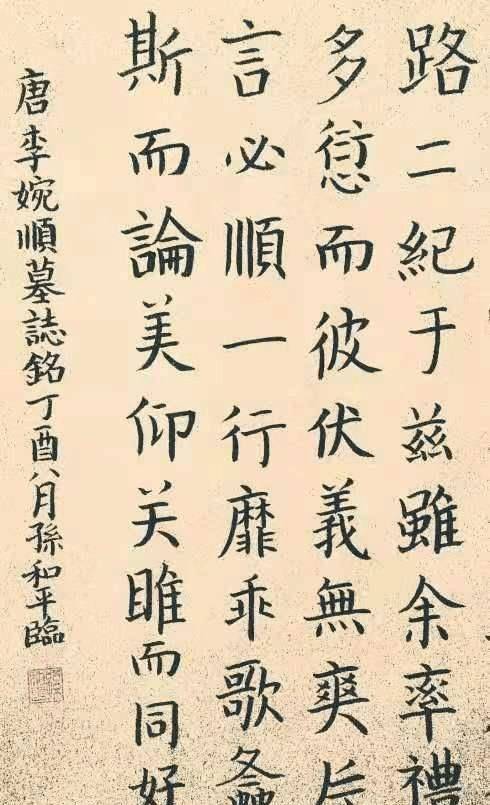 路二紀于兹雖余率禮
多愆而彼伏義無爽片
言必順一行靡乖歌螽
斯而論美仰关雎而同好
唐李婉順墓誌銘丁酉八月孫和平臨